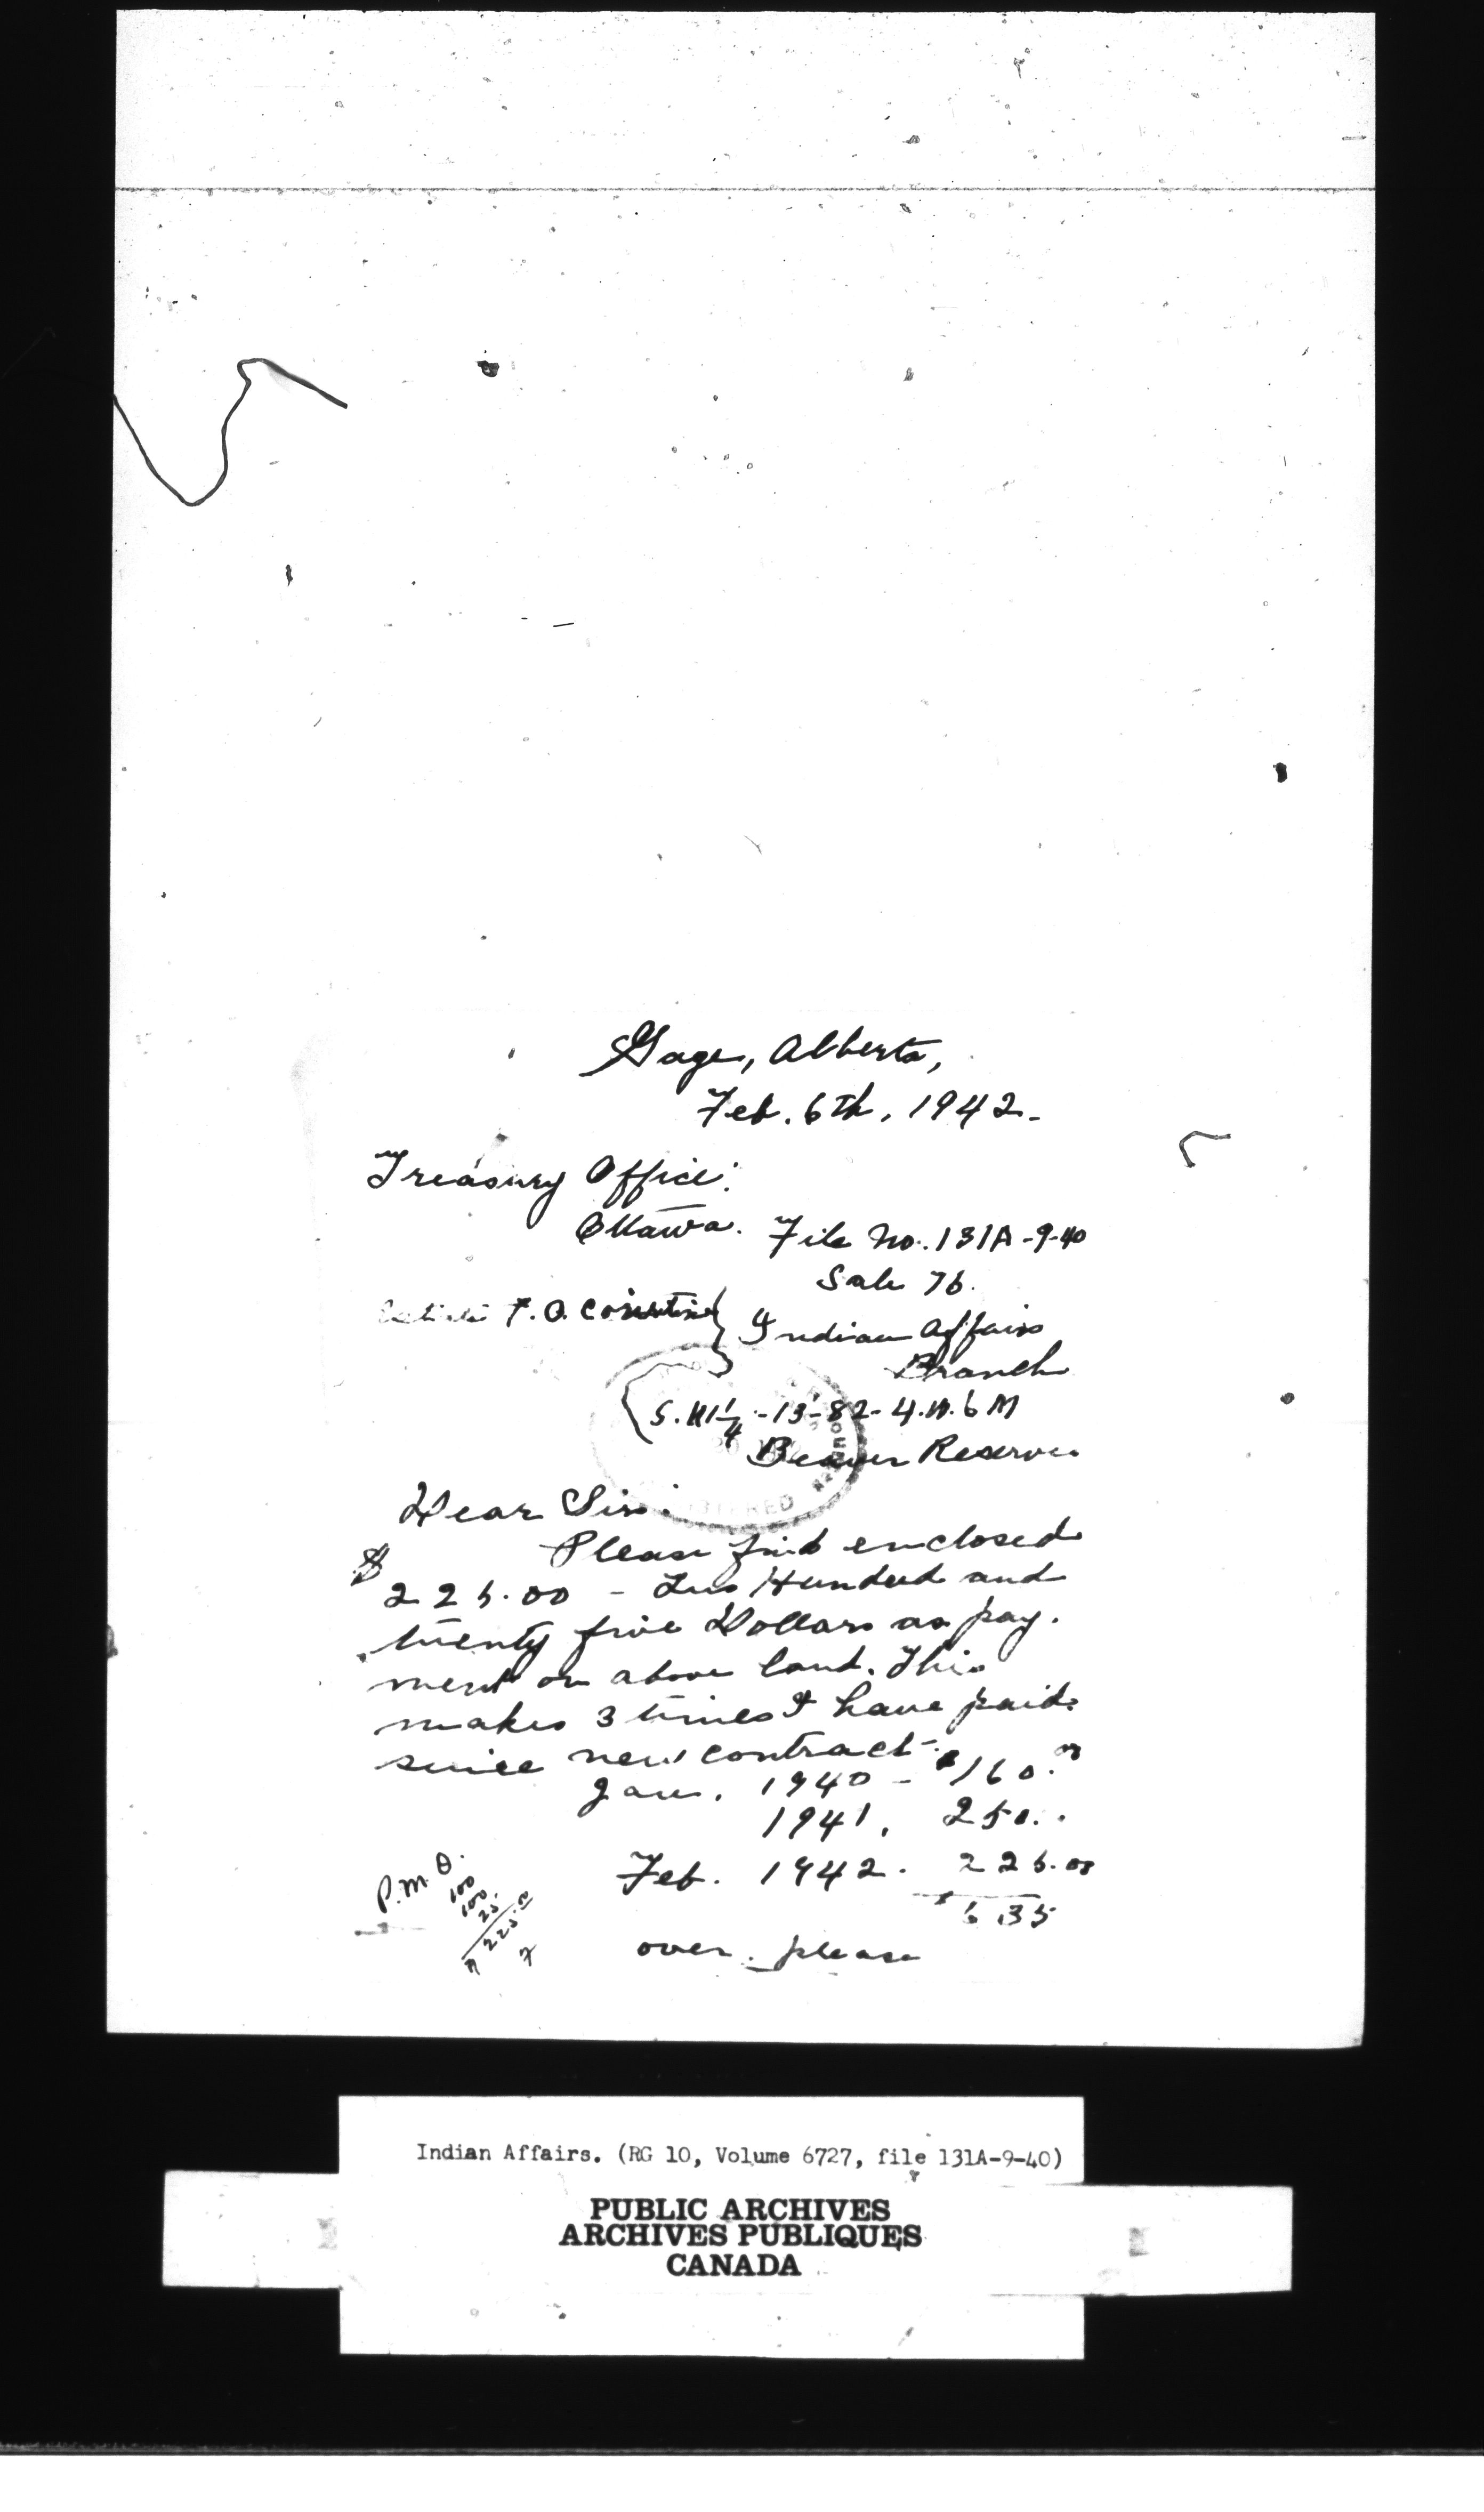 Gage, Alberta,
Feb. 6th, 1942.
Treasury Office:
Ottawa. File No. 131A-9-40
Sale 76.
P. O. Indian Affairs
Branch
S.W 1/4 - 13 - 82 - 4. W. 6 M
Beaver Reserve
Dear Sir:
Please find enclosed
$
225.00 - Two Hundred and
twenty five Dollars as pay-
ment on above land. This
makes 3 times I have paid
since new contract -
Jan. 1940 - $160.00
1941, 250..
Feb. 1942. 225.00
$ 635
P.M.O.
100
100.
25.
225.0
over please
Indian Affairs. (RG 10, Volume 6727, file 131A-9-40)
PUBLIC ARCHIVES
ARCHIVES PUBLIQUES
CANADA